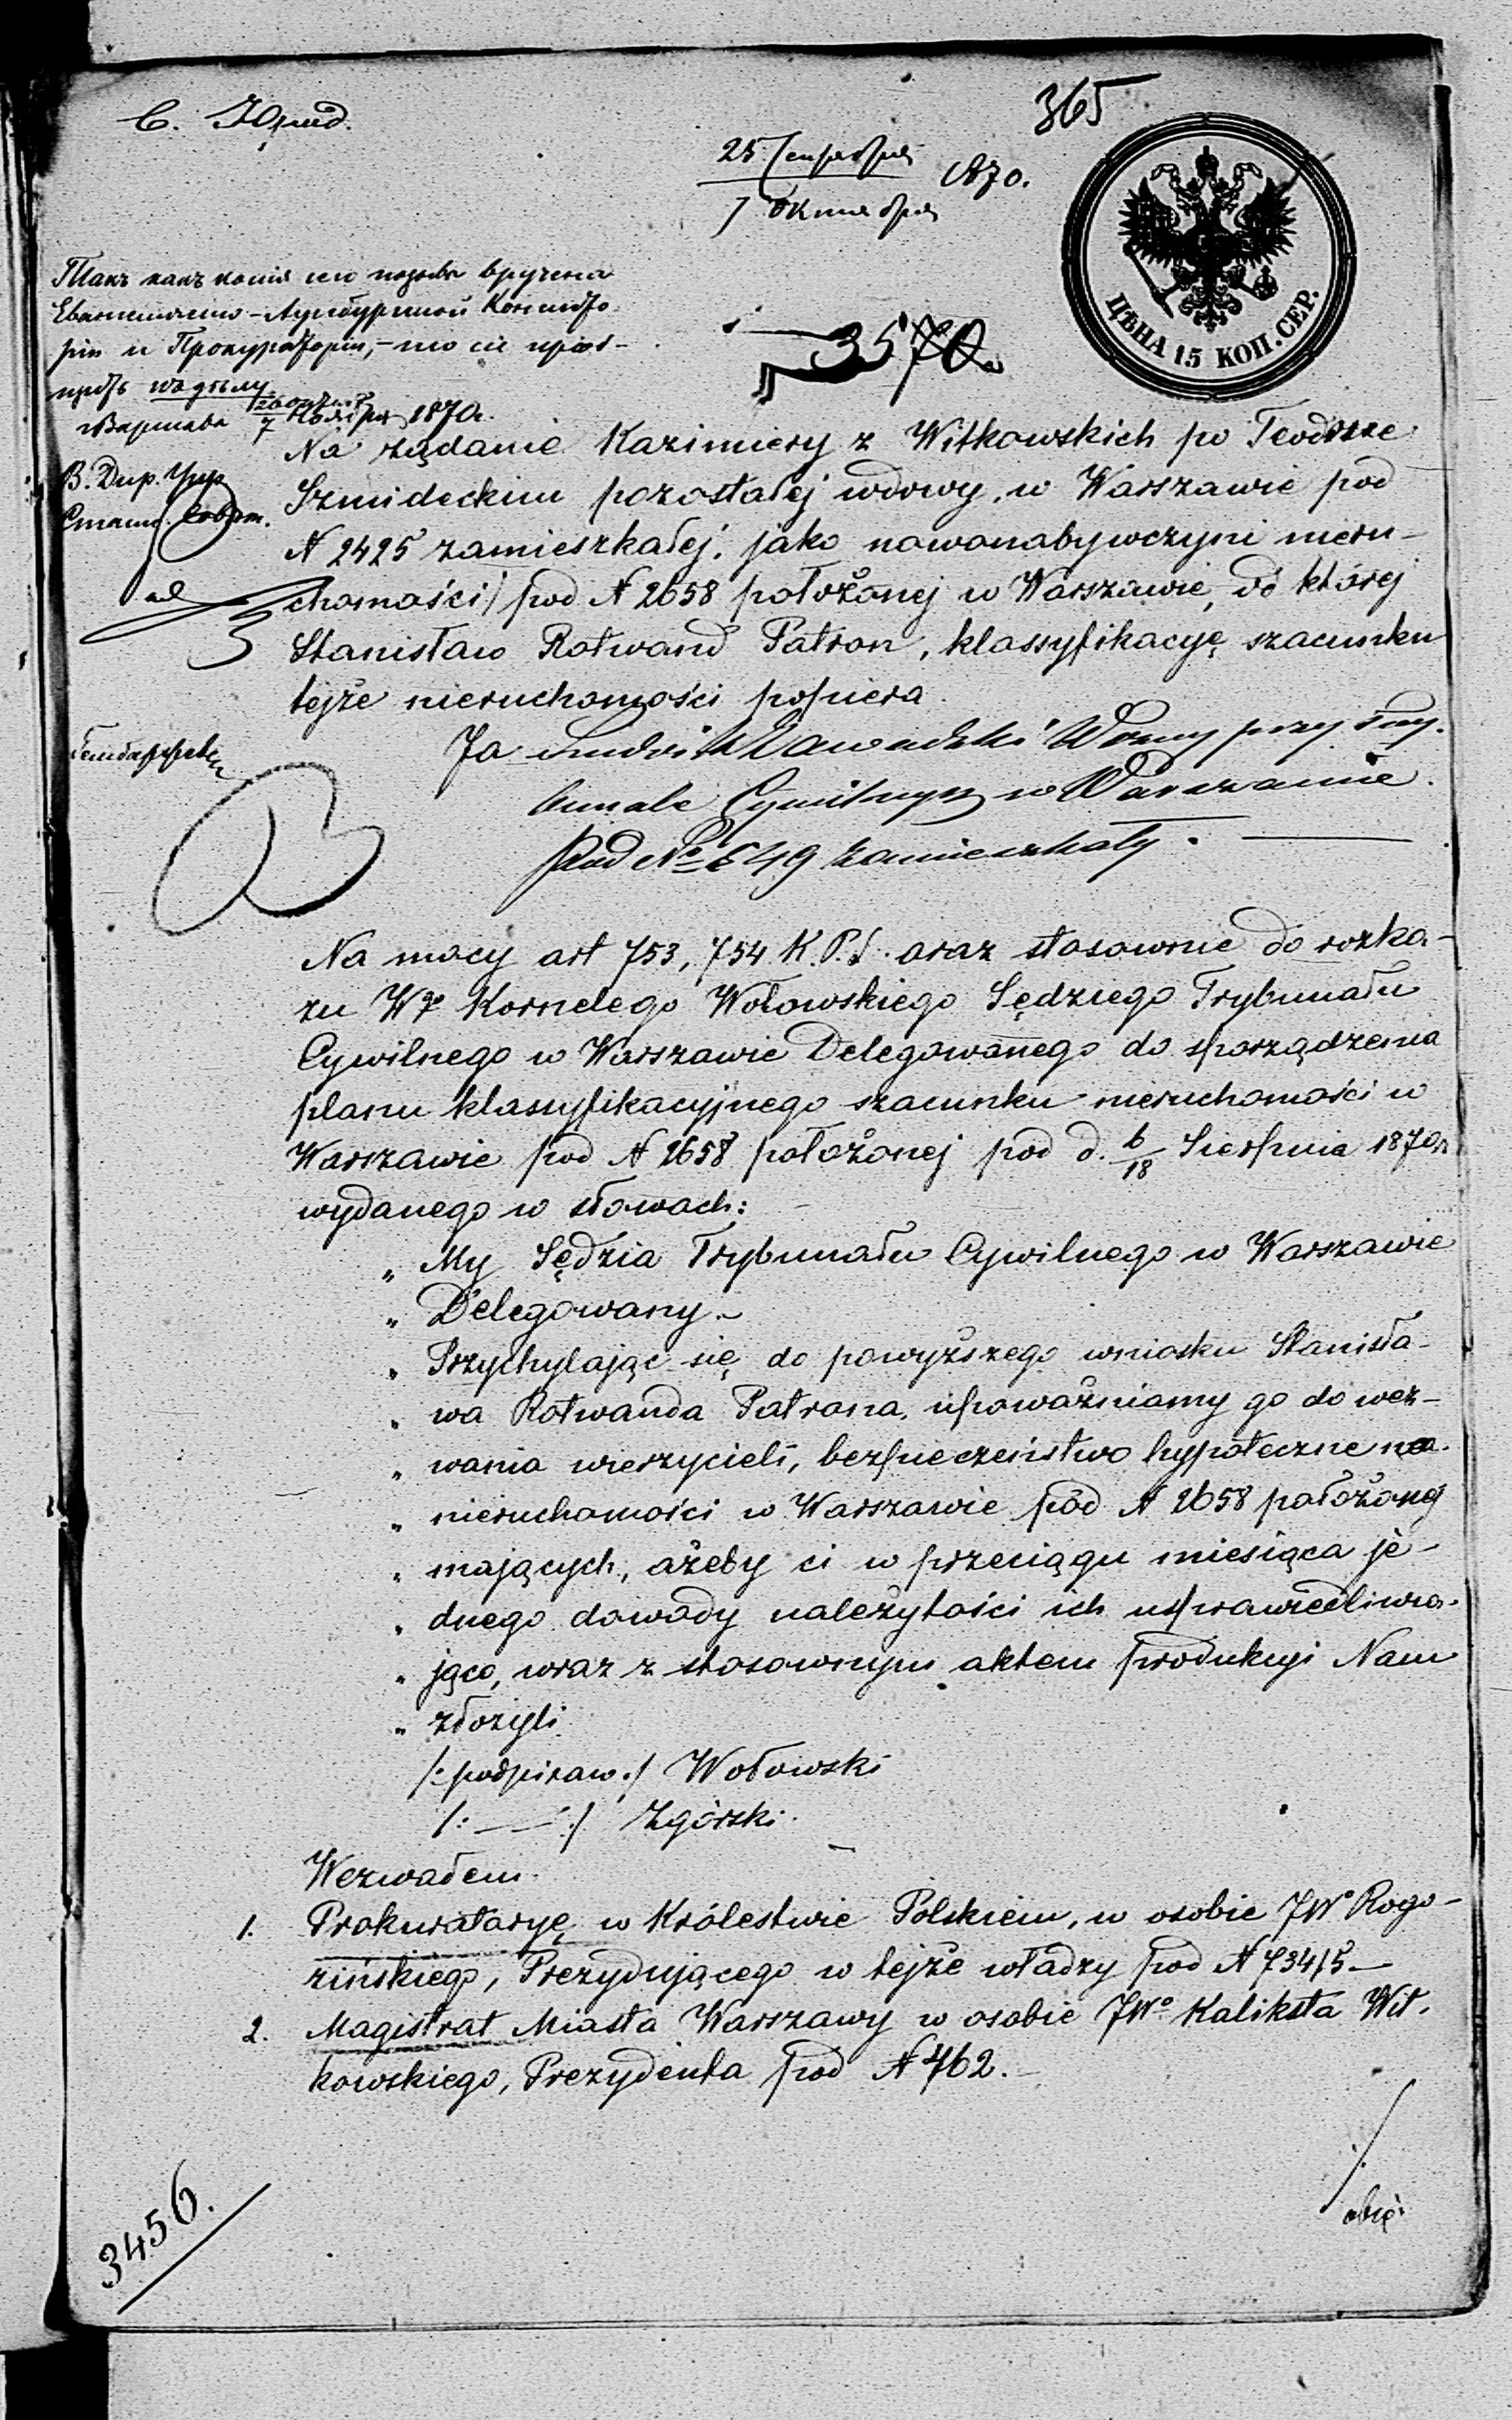 С. Юрид.
365
25 Сентября
7 Октября 1870.
ЦѢНА 15 КОП. СЕР.
Такъ какъ копія сего позыва вручена
Евангелическо-Аугсбургской Консисто-
ріи и Прокураторіи, – то сіе пріоб-
щить къ дѣлу
Варшава 26 Октября / 7 Ноября 1870 г.
3570
В. Дир.
Na żądanie Kazimiery z Witkowskich po Teodorze
Szmideckim pozostałej wdowy, w Warszawie pod
N 2425 zamieszkałej, jako nowonabywczyni nieru-
chomości pod N 2658 położonej w Warszawie, od której
Stanisław Rotwand Patron, klassyfikacyę szacunku
tejże nieruchomości popiera
Ja Ludwik Zawadzki Woźny przy Try-
bunale Cywilnym w Warszawie
pod No 649 zamieszkały.
Na mocy art 753, 754 K.P.S. oraz stosownie do rozka-
zu Wgo Kornelego Wołowskiego Sędziego Trybunału
Cywilnego w Warszawie Delegowanego do sporządzenia
planu klassyfikacyjnego szacunku nieruchomości w
Warszawie pod N 2658 położonej pod d. 6/18 Sierpnia 1870 r.
wydanego w słowach:
„ My Sędzia Trybunału Cywilnego w Warszawie
„ Delegowany.
„ Przychylając się do powyższego wniosku Stanisła-
„ wa Rotwanda Patrona, upoważniamy go do wez-
„ wania wierzycieli, bezpieczeństwo hypoteczne na
„ nieruchomości w Warszawie pod N 2658 położonej
„ mających, ażeby ci w przeciągu miesiąca je-
„ dnego dowody należytości ich usprawiedliwia-
„ jące, wraz z stosownym aktem produkcyi Nam
„ złożyli
/: podpisaw :/ Wołowski
/: — :/ Zgórski.
Wezwałem
1. Prokuratoryę w Królestwie Polskiem, w osobie JWo Rogo-
zińskiego, Prezydującego w tejże władzy pod N 734/5
2. Magistrat Miasta Warszawy w osobie JWo Kaliksta Wit-
kowskiego, Prezydenta pod N 462.
3456.